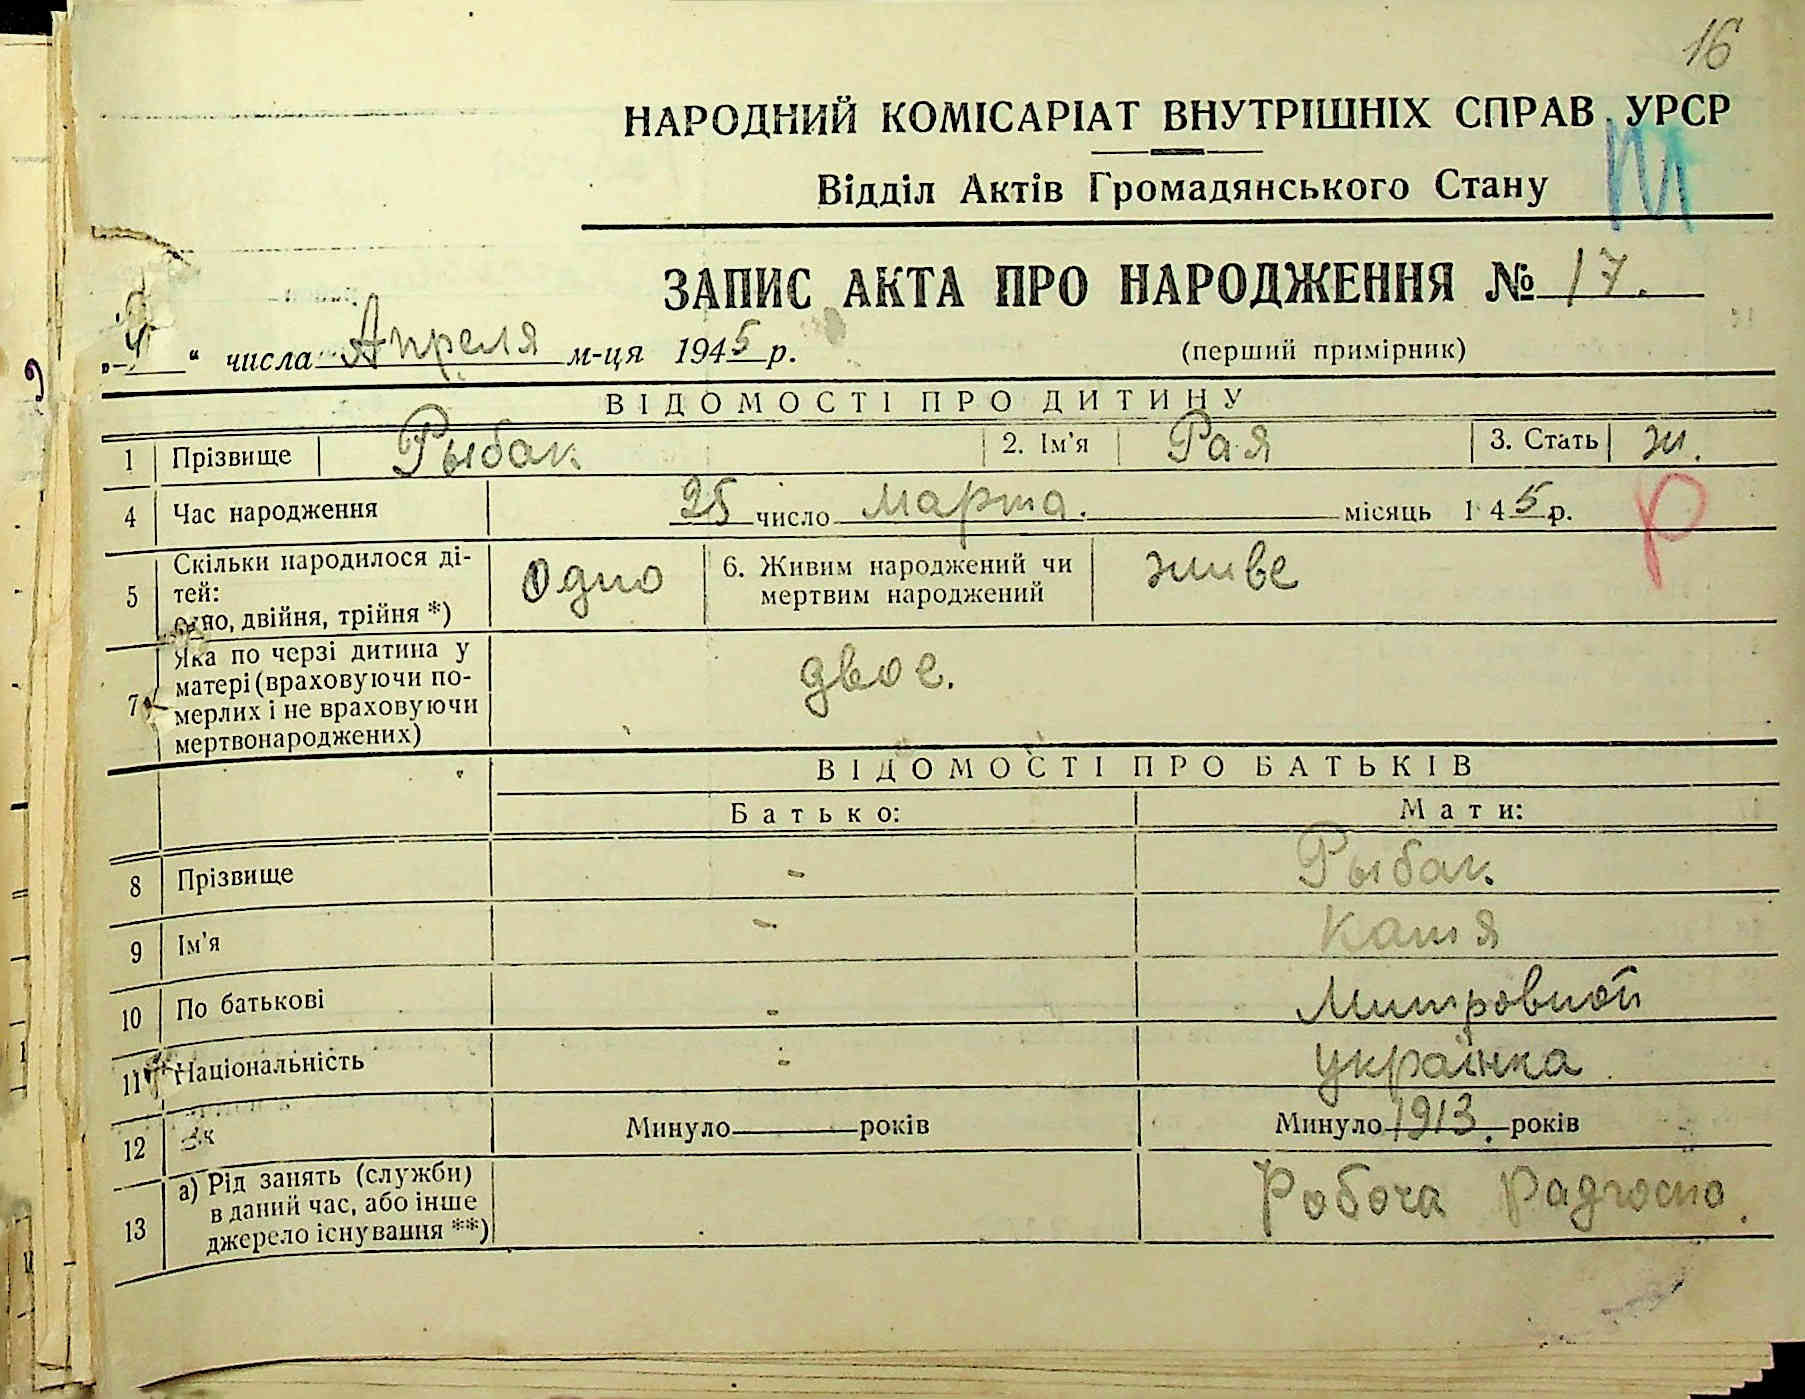 16
НАРОДНИЙ КОМІСАРІАТ ВНУТРІШНІХ СПРАВ УРСР
Відділ Актів Громадянського Стану
ЗАПИС АКТА ПРО НАРОДЖЕННЯ № 17.
„ “ числа Апреля м-ця 1945 р. (перший примірник)
ВІДОМОСТІ ПРО ДИТИНУ
1 Прізвище Рыбак 2. Ім'я Рая 3. Стать ж.
4 Час народження 25 число марта. місяць 1 45 р.
р
5 Скільки народилося ді-
тей:
одно, двійня, трійня *)
Одно 6. Живим народжений чи
мертвим народжений
живе
7 Яка по черзі дитина у
матері (враховуючи по-
мерлих і не враховуючи
мертвонароджених)
двое.
ВІДОМОСТІ ПРО БАТЬКІВ
Батько: Мати:
8 Прізвище - Рыбак
9 Ім'я - Катя
10 По батькові - Митровной
11 Національність - українка
12 Вк Минуло róків років Минуло 1913. років
13 а) Рід занять (служби)
в даний час, або інше
джерело існування **)
Робоча Радгоспо.